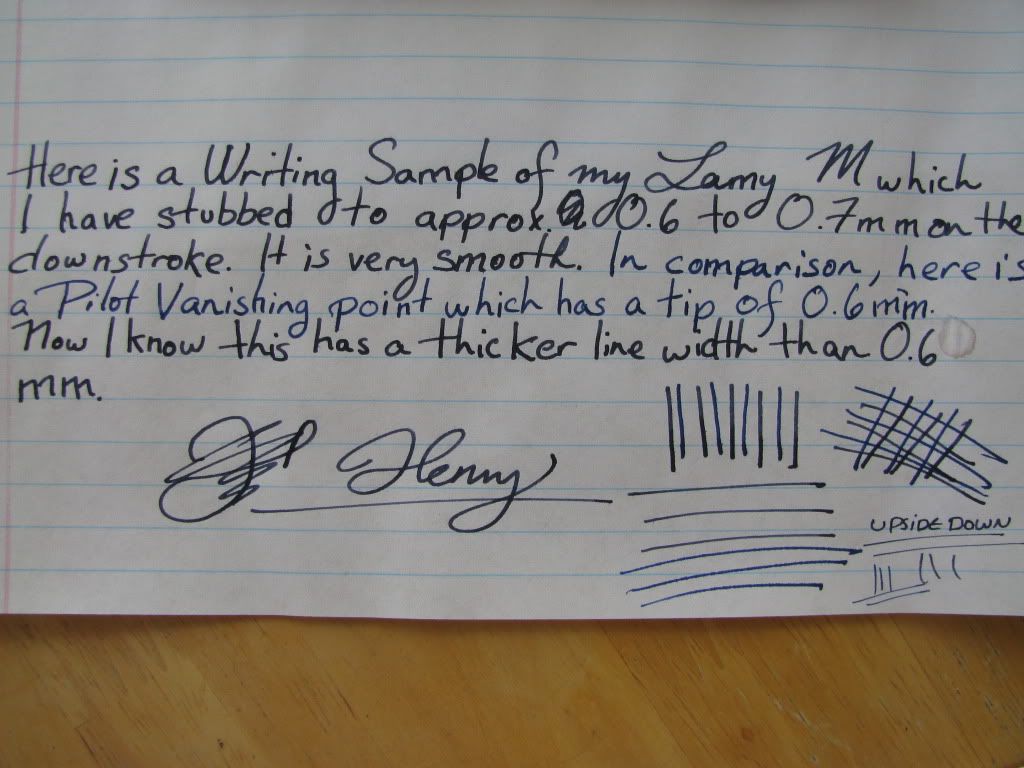 Here is a Writing Sample of my Lamy M which
I have stubbed to approx. 0.6 to 0.7mm on the
downstroke. It is very smooth. In comparison, here is
a Pilot Vanishing point which has a tip of 0.6mm.
Now I know this has a thicker line width than 0.6
mm.
Henny
UPSIDE DOWN